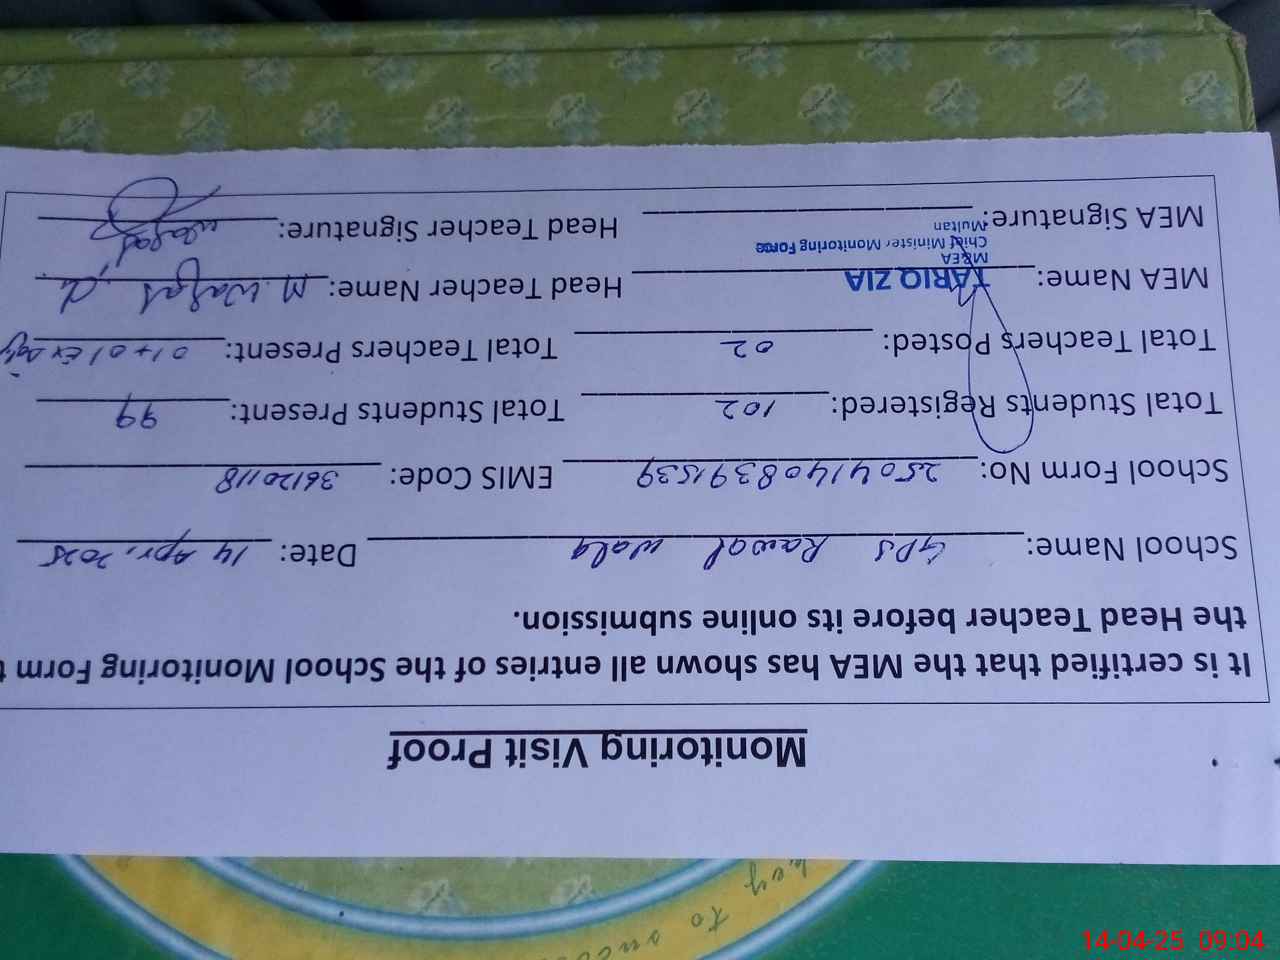 Monitoring Visit Proof
It is certified that the MEA has shown all entries of the School Monitoring Form t
the Head Teacher before its online submission.
School Name: GPS Rawal wala Date: 14 Apr, 2025
School Form No: 25041408391539 EMIS Code: 36120118
Total Students Registered: 102 Total Students Present: 99
Total Teachers Posted: 02 Total Teachers Present: 01+01 Ex
MEA Name: TARIQ ZIA Head Teacher Name: M. Waqas
MEA
Chief Minister Monitoring Force
Multan
MEA Signature: Head Teacher Signature: Waqas
key to success
14-04-25 09:04